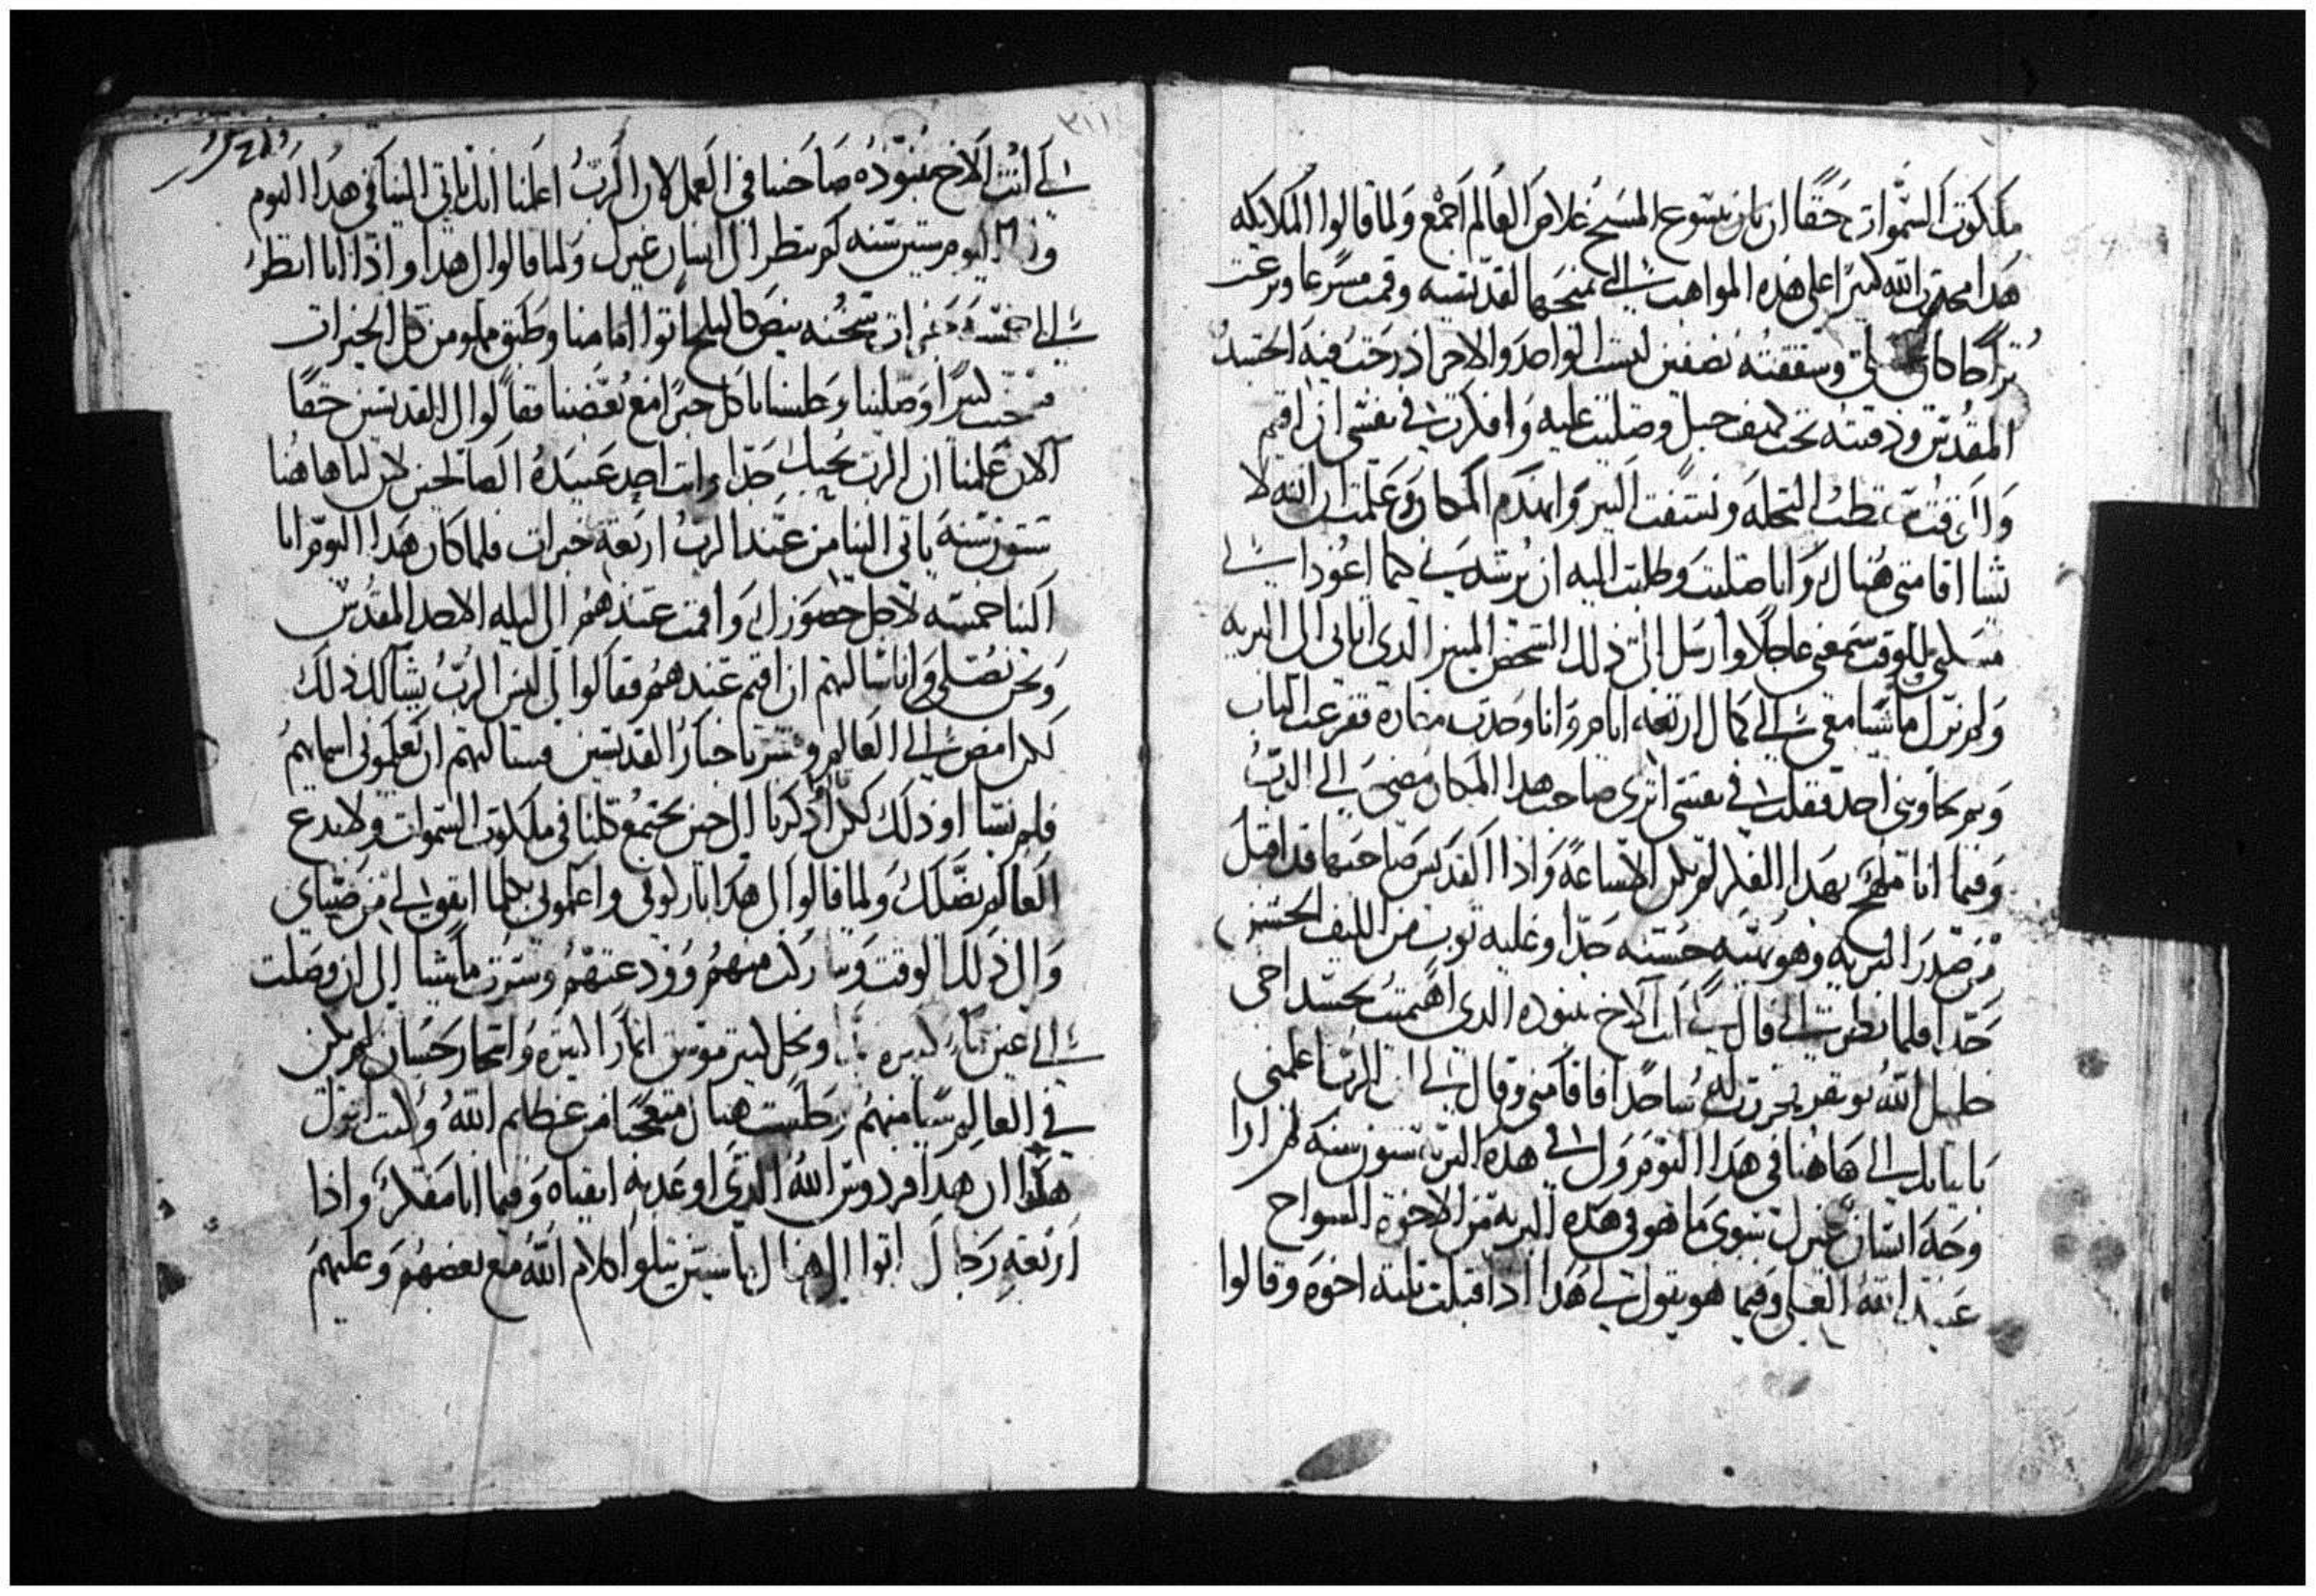 ملكوت السموات حقا ان يسوع المسيح خلاص العالم اجمع ولما قالوا الملايكه
هدا مجدت الله كثيرا على هده المواهب الى يمنحها لقديسيه وقمت مسرعا ونزعت
وشققته نصفين لبست الواحد والاخر ادرجت فيه الجسد
المقدس ودفنته تحت كهف جبل وصليت عليه وافكرت فى نفسى ان اقيم
النخله ونشفت البير وانهدم المكان وعلمت ان الله لا
يشا اقامتى هناك وانا صليت وطلبت اليه ان يرشدنى كيما اعود الى
للوقت سمعنى عاجلا وارسل الى ذلك الشخص المنير الدى اتا بى الى البريه
ولم نزل ماشيا معى الى كمال اربعه ايام وانا وجدت مغاره فقرعت الباب
ولم يجاوبنى احد فقلت فى نفسى اترى صاحب هدا المكان مضى الى الرب
وفيما انا بهدا الفكر لم يكن الا ساعة واذا القديس صاحبها قد اقبل
من صدر البريه وهو حسنه جدا وعليه توب من الليف الخشن
جدا فلما نظر الى قال لى انت الاخ ببنوده الدى اهتميت بجسد اخى
خليل الله نوفر فخررت له ساجدا فاقامنى وقال لى ان الرب اعلمنى
باتيانك الى هاهنا فى هدا اليوم ولى فى هده البريه ستون سنه لم ارا
وجه انسان غيرك سوى ما هو فى هده البريه من الاخوة السواح
عبيد الله العلى وفيما هو يقول لى هدا ادا قبلت تلته اخوه وقالوا
لى انت الاخ ببنوده صاحبنا فى العمل لان الرب اعلمنا انك تاتى الينا فى هدا اليوم
اليوم ستين سنه لم ننظر الى انسان غيرك ولما قالوا لى هدا واذا انا انظر
الى خمسة خبزات سخنه بيض كالتلج اتوا امامنا وطبق مملو من كل الخيرات
كثيرا وصلينا وجلسنا ناكل خبزا مع بعضنا فقالوا لى القديسين حقا
الان علمنا ان الرب يحبك جدا وانت احد عبيده الصالحين لان لنا هاهنا
ستون سنة ياتى الينا من عند الرب اربعة خبزات فلما كان هدا اليوم اتا
الينا خمسه لاجل حضورك واقمت عندهم الى ليله الاحد المقدس
ونحن نصلى وانا سالتهم ان اقيم عندهم فقالوا لى ليس الرب يشا لك ذلك
لكن امض الى العالم وبشر باخبار القديسين فسالتهم ان يعلمونى اسمايهم
فلم يشاوا ذلك لكن اذكرنا الى حين نجتمع كلنا فى ملكوت السموات ولا تدع
العالم يضلك ولما قالوا لى هدا باركونى واعلمونى
والى ذلك الوقت وتباركت منهم وودعتهم وسرت ماشيا الى ان وصلت
الى عين ما كبيره ونخل كتير موسق اتمار كتيره واشجار حسان لم يكن
فى العالم شيا منهم وجلست هناك متعجبا من عظايم الله وكنت اقول
هكدا ان هدا فردوس الله الذى اوعد به اتقياه وفيما انا مفكر واذا
اربعه رجال اتوا الى هناك لابسين يتلوا كلام الله مع بعضهم وعليهم